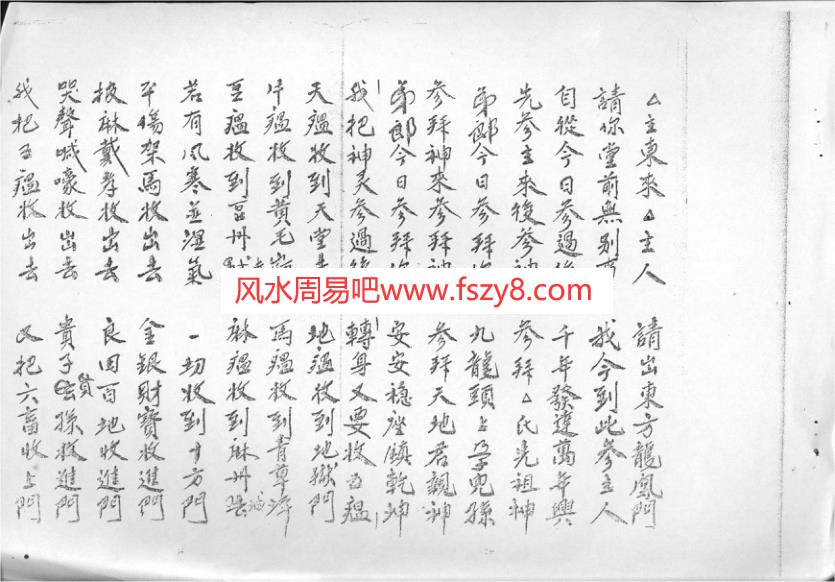 △主東來△主人 請出東方龍鳳門
請你堂前無別 我今到此參主人
自從今日參過後 千年發達萬年興
先參主來後參神 參拜△氏先祖神
弟郎今日參拜 九龍頭上孕兒孫
參拜神來參拜神 參拜天地君親神
弟郎今日參拜你 安安穩座鎮乾坤
我把神灵參過後 轉身又要收五瘟
天瘟收到天堂去 地瘟收到地獄門
牛瘟收到黃毛 馬瘟收到青草坪
豆瘟收到豆州 麻瘟收到麻州城
若有风寒並濕氣 一切收到十方門
平傷架馬收出去 金銀財寶收進門
披麻戴孝收出去 良田百地收進門
哭聲喊嚎收出去 貴子賢孫收進門
我把五瘟收出去 又把六畜收上門
风水周易吧www.fszy8.com